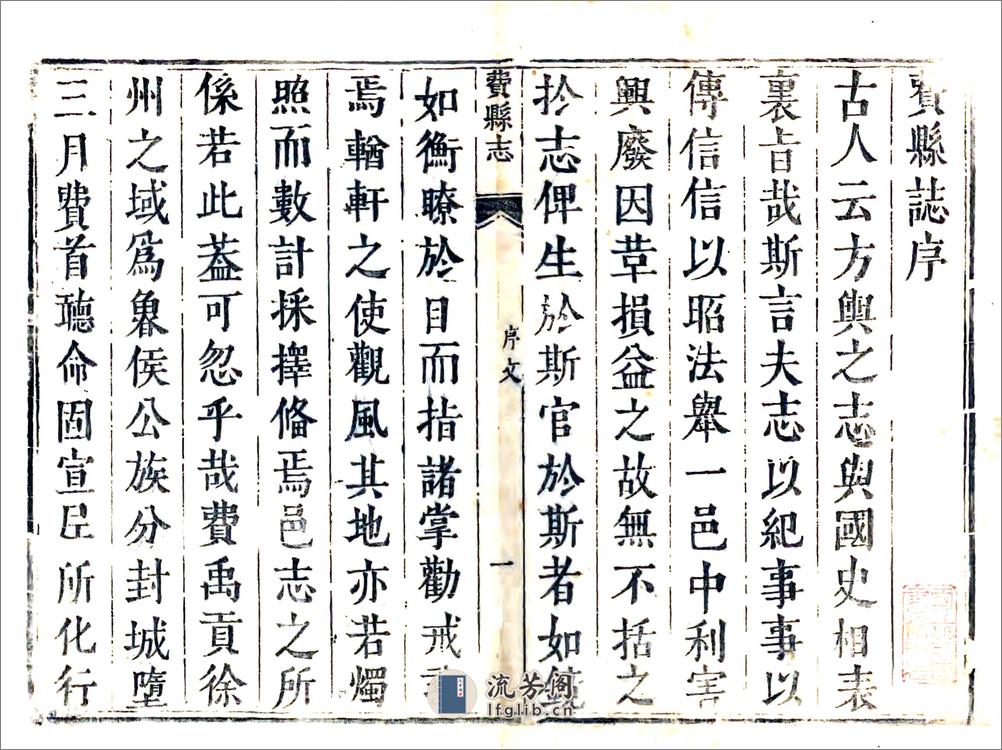 費縣誌序
古人云方輿之志與國史相表
裏旨哉斯言夫志以紀事事以
傳信信以昭法舉一邑中利害
興廢因革損益之故無不括之
扵志俾生於斯官於斯者如鏡
費縣志
序文
一
如衡瞭於目而指諸掌勸戒
焉輶軒之使觀風其地亦若燭
照而數計採擇俻焉邑志之所
係若此葢可忽乎哉費禹貢徐
州之域爲魯侯公族分封城墮
三月費首聽命固宣尼所化行
流芳阁
lfglib.cn